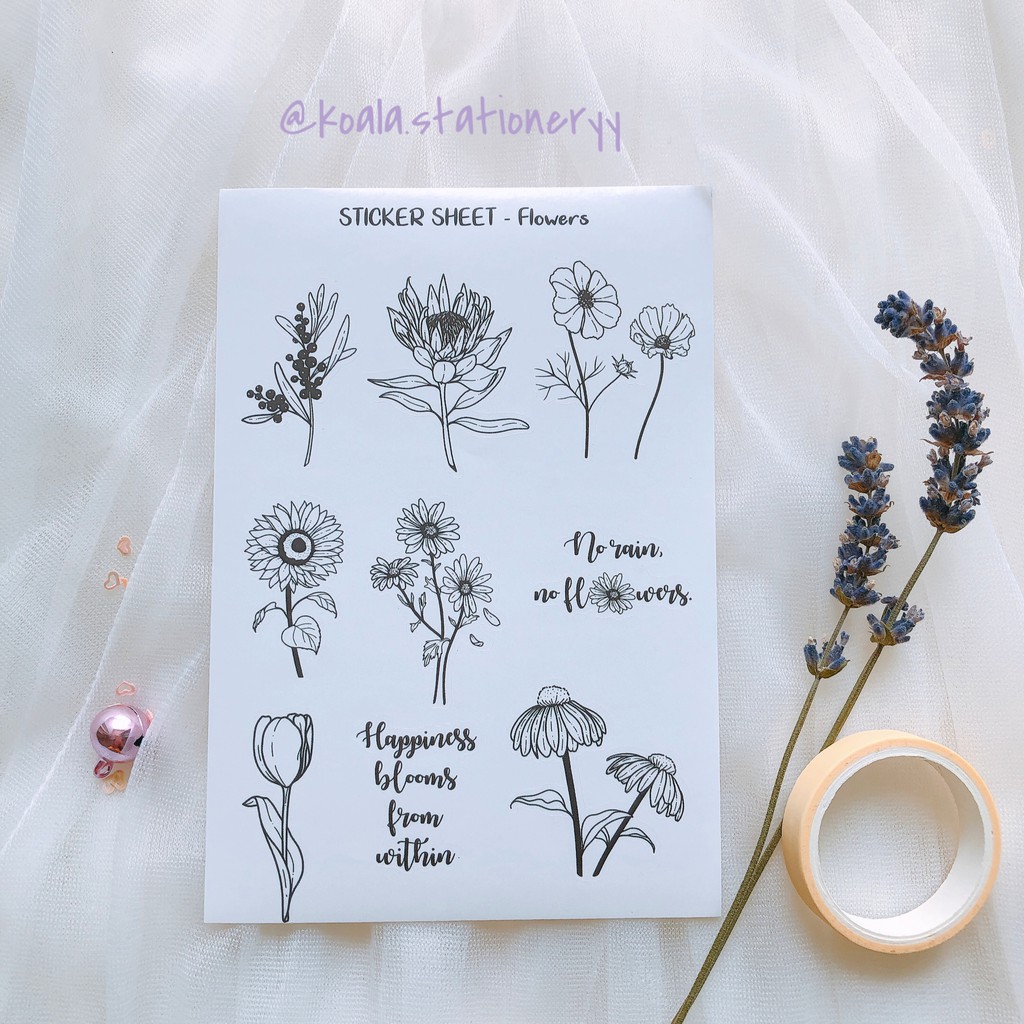 @koala.stationeryy
STICKER SHEET - Flowers
No rain,
no flowers.
Happiness
blooms
from
within.